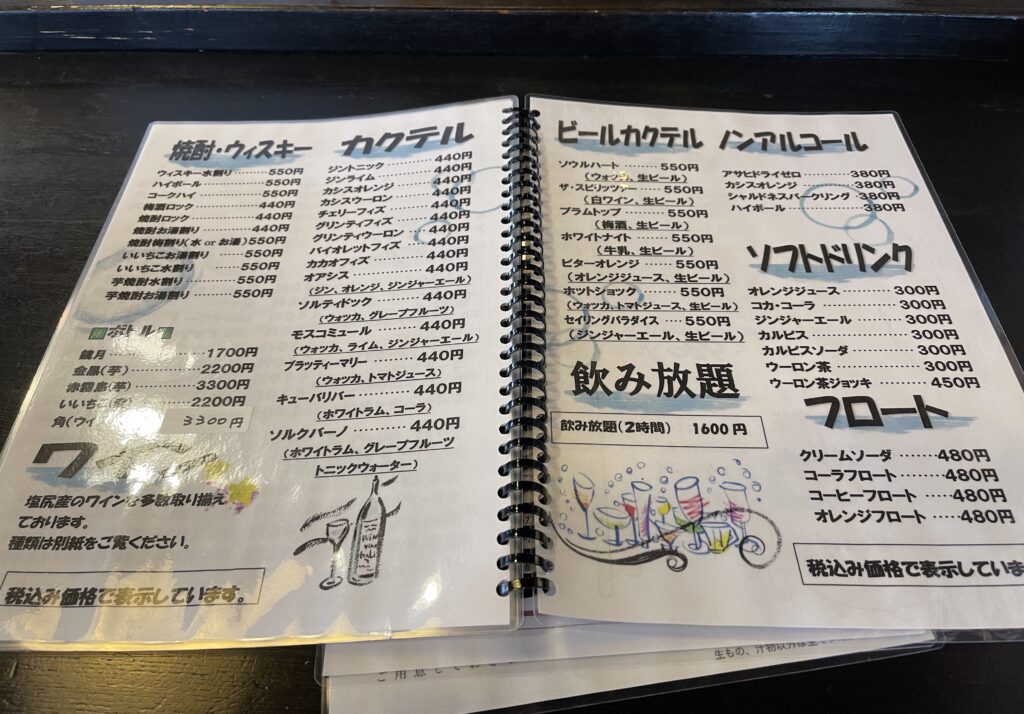 焼酎・ウィスキー
ウィスキー水割り ‥‥‥550円
ハイボール ‥‥‥‥‥550円
コークハイ ‥‥‥‥‥550円
梅酒ロック ‥‥‥‥‥440円
焼酎ロック ‥‥‥‥‥440円
焼酎お湯割り ‥‥‥‥440円
焼酎梅割り(水 or お湯)550円
いいちこお湯割り ‥‥550円
いいちこ水割り 550円
芋焼酎水割り ‥‥‥‥550円
芋焼酎お湯割り ‥‥‥550円
ボトル
鏡月 ‥‥‥‥‥ 1700円
金黒(芋) ‥‥‥‥2200円
赤霧島(芋) ‥‥‥3300円
いいちこ ‥‥‥2200円
角(ウイ 3300円
ワ
塩尻産のワインを多数取り揃え
ております。
種類は別紙をご覧ください。
税込み価格で表示しています。
カクテル
ジントニック ‥‥‥‥‥440円
ジンライム ‥‥‥‥‥‥440円
カシスオレンジ ‥‥‥‥440円
カシスウーロン ‥‥‥‥440円
チェリーフィズ ‥‥‥‥440円
グリンティフィズ ‥‥‥440円
グリンティウーロン ‥‥440円
バイオレットフィズ ‥‥440円
カカオフィズ ‥‥‥‥‥440円
オアシス ‥‥‥‥‥‥‥440円
(ジン、オレンジ、ジンジャーエール)
ソルティドック ‥‥‥‥440円
(ウォッカ、グレープフルーツ)
モスコミュール ‥‥‥‥440円
(ウォッカ、ライム、ジンジャーエール)
ブラッティーマリー ‥‥440円
(ウォッカ、トマトジュース)
キューバリバー ‥‥‥‥440円
(ホワイトラム、コーラ)
ソルクバーノ ‥‥‥‥‥440円
(ホワイトラム、グレープフルーツ
トニックウォーター)
ビールカクテル
ソウルハート ‥‥‥550円
(ウォッカ、生ビール)
ザ・スピリッツァー ‥‥550円
(白ワイン、生ビール)
プラムトップ ‥‥‥550円
(梅酒、生ビール)
ホワイトナイト ‥‥‥550円
(牛乳、生ビール)
ビターオレンジ ‥‥‥550円
(オレンジジュース、生ビール)
ホットショック ‥‥‥550円
(ウォッカ、トマトジュース、生ビール)
セイリングパラダイス ‥‥550円
(ジンジャーエール、生ビール)
飲み放題
飲み放題(2時間) 1600円
ノンアルコール
アサヒドライゼロ ‥‥‥380円
カシスオレンジ ‥‥‥‥380円
シャルドネスパークリング ‥380円
ハイボール ‥‥‥‥‥380円
ソフトドリンク
オレンジジュース ‥‥‥300円
コカ・コーラ ‥‥‥‥‥300円
ジンジャーエール ‥‥‥300円
カルピス ‥‥‥‥‥‥300円
カルピスソーダ ‥‥‥‥300円
ウーロン茶 ‥‥‥‥‥300円
ウーロン茶ジョッキ ‥‥450円
フロート
クリームソーダ ‥‥‥480円
コーラフロート ‥‥‥480円
コーヒーフロート ‥‥480円
オレンジフロート ‥‥480円
税込み価格で表示していま